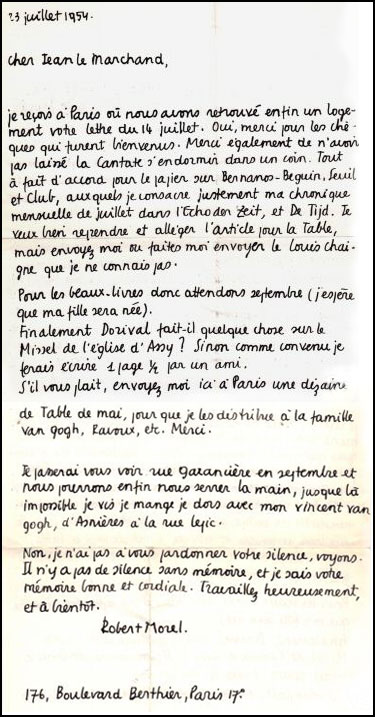 23 juillet 1954.
Cher Jean le Marchand,
je reçois à Paris où nous avons retrouvé enfin un loge-
ment votre lettre du 14 juillet. Oui, merci pour les chè-
ques qui furent bienvenus. Merci également de n'avoir
pas laissé la Cantate s'endormir dans un coin. Tout
à fait d'accord pour le papier sur Bernanos-Beguin, Seuil
et Club, auxquels je consacre justement ma chronique
mensuelle de juillet dans l'Echo der Zeit, et De Tijd. Je
veux bien reprendre et alléger l'article pour la Table,
mais envoyez moi ou faites moi envoyer le Louis Chai-
gne que je ne connais pas.
Pour les beaux-livres donc attendons septembre (j'espère
que ma fille sera née).
Finalement Dorival fait-il quelque chose sur le
Missel de l'église d'Assy ? Sinon comme convenu je
ferais écrire 1 page ½ par un ami.
S'il vous plait, envoyez moi ici à Paris une dizaine
de Table de mai, pour que je les distribue à la famille
van gogh, Ravoux, etc. Merci.
Je passerai vous voir rue garancière en septembre et
nous pourrons enfin nous serrer la main, jusque là
impossible je vis je mange je dors avec mon vincent van
gogh, d'Asnières à la rue Lepic.
Non, je n'ai pas à vous pardonner votre silence, voyons.
Il n'y a pas de silence sans mémoire, et je sais votre
mémoire bonne et cordiale. Travaillez heureusement,
et à bientôt.
Robert Morel.
176, Boulevard Berthier, Paris 17e